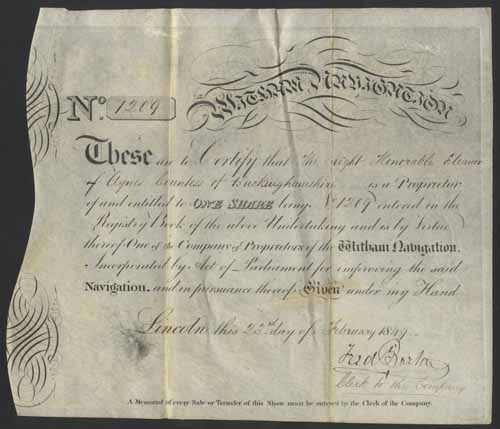 WITHAM NAVIGATION
No. 1209
These are to Certify that The Right Honorable Eleanor
of Agnes Countess of Buckinghamshire is a Proprietor
of and entitled to ONE SHARE being No 1209 entered in the
Registry Book of the above Undertaking and is by Virtue
thereof One of the Company of Proprietors of the Witham Navigation.
Incorporated by Act of Parliament for improving the said
Navigation, and in pursuance thereof Given under my Hand
Lincoln this 23rd day of February 1849
Fred Burton
Clerk to the Company
A Memorial of every Sale or Transfer of this Share must be entered by the Clerk of the Company.